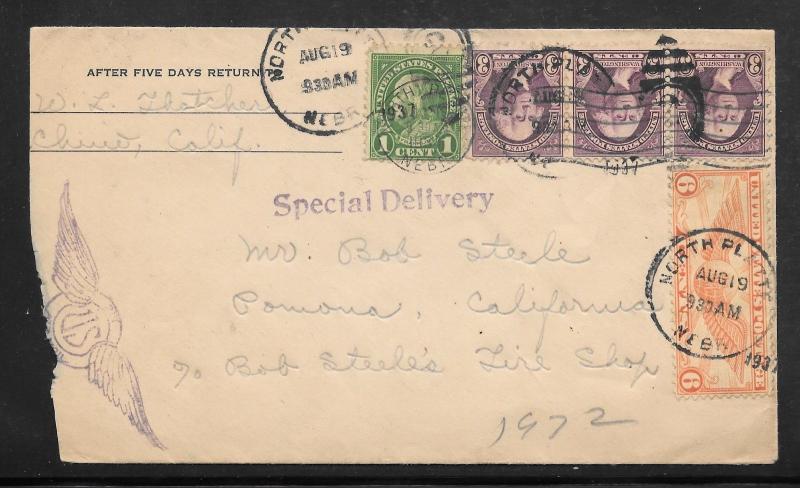 AFTER FIVE DAYS RETURN T
W. L. Thatcher
Chino, Calif.
NORTH
AUG 19
930AM
NEBR
UNITED STATES POSTAGE
1 CENT 1
1937
NEBR.
WASHINGTON
3
UNITED STATES POSTAGE
3
3
NORTH PL
1937
Special Delivery
6
6
NORTH PLATTE
AUG 19
930AM
NEBR
1937
US
Mr. Bob Steele
Pomona, California
℅ Bob Steele's Tire Shop
1972